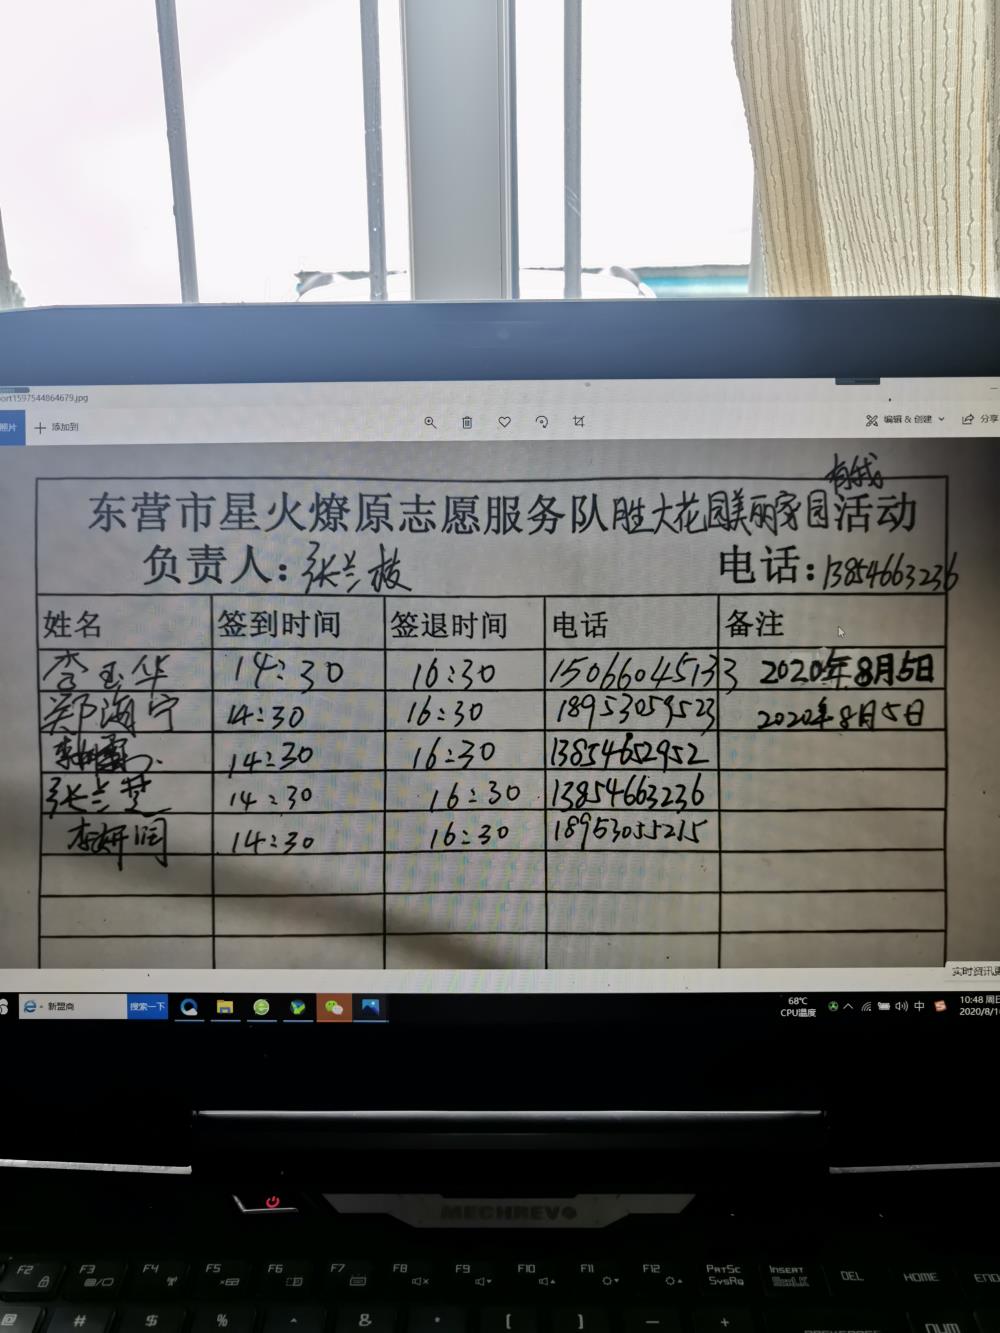 ort1597544864679.jpg
照片 添加到 编辑 & 创建 分享
有我
东营市星火燎原志愿服务队胜大花园美丽家园活动
负责人:张兰枝 电话:13854663236
姓名 签到时间 签退时间 电话 备注
李玉华 14:30 16:30 15066045133 2020年8月5日
郑海宁 14:30 16:30 18953059523 2020年8月5日
14:30 16:30 13854652952
张兰芝 14:30 16:30 13854663236
李妍润 14:30 16:30 18953055215
实时资讯
新盟商 搜索一下 68℃ 中 10:48 周日
CPU温度 2020/8/1
MECHREVO
F2 F3 F4 F5 F6 F7 F8 F9 F10 F11 F12 PrtSc Insert DEL HOME END
SysRq ScrLK
@ # $ % ^ & * ( ) — + NUM